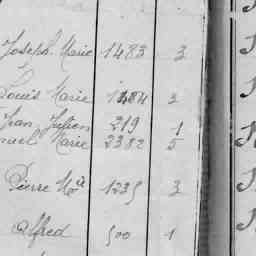 Joseph Marie 1483 3
Louis Marie 1484 3
Jean Julien 219 1
nuel Marie 2382 5
Pierre Mie 1235 3
Alfred 500 1